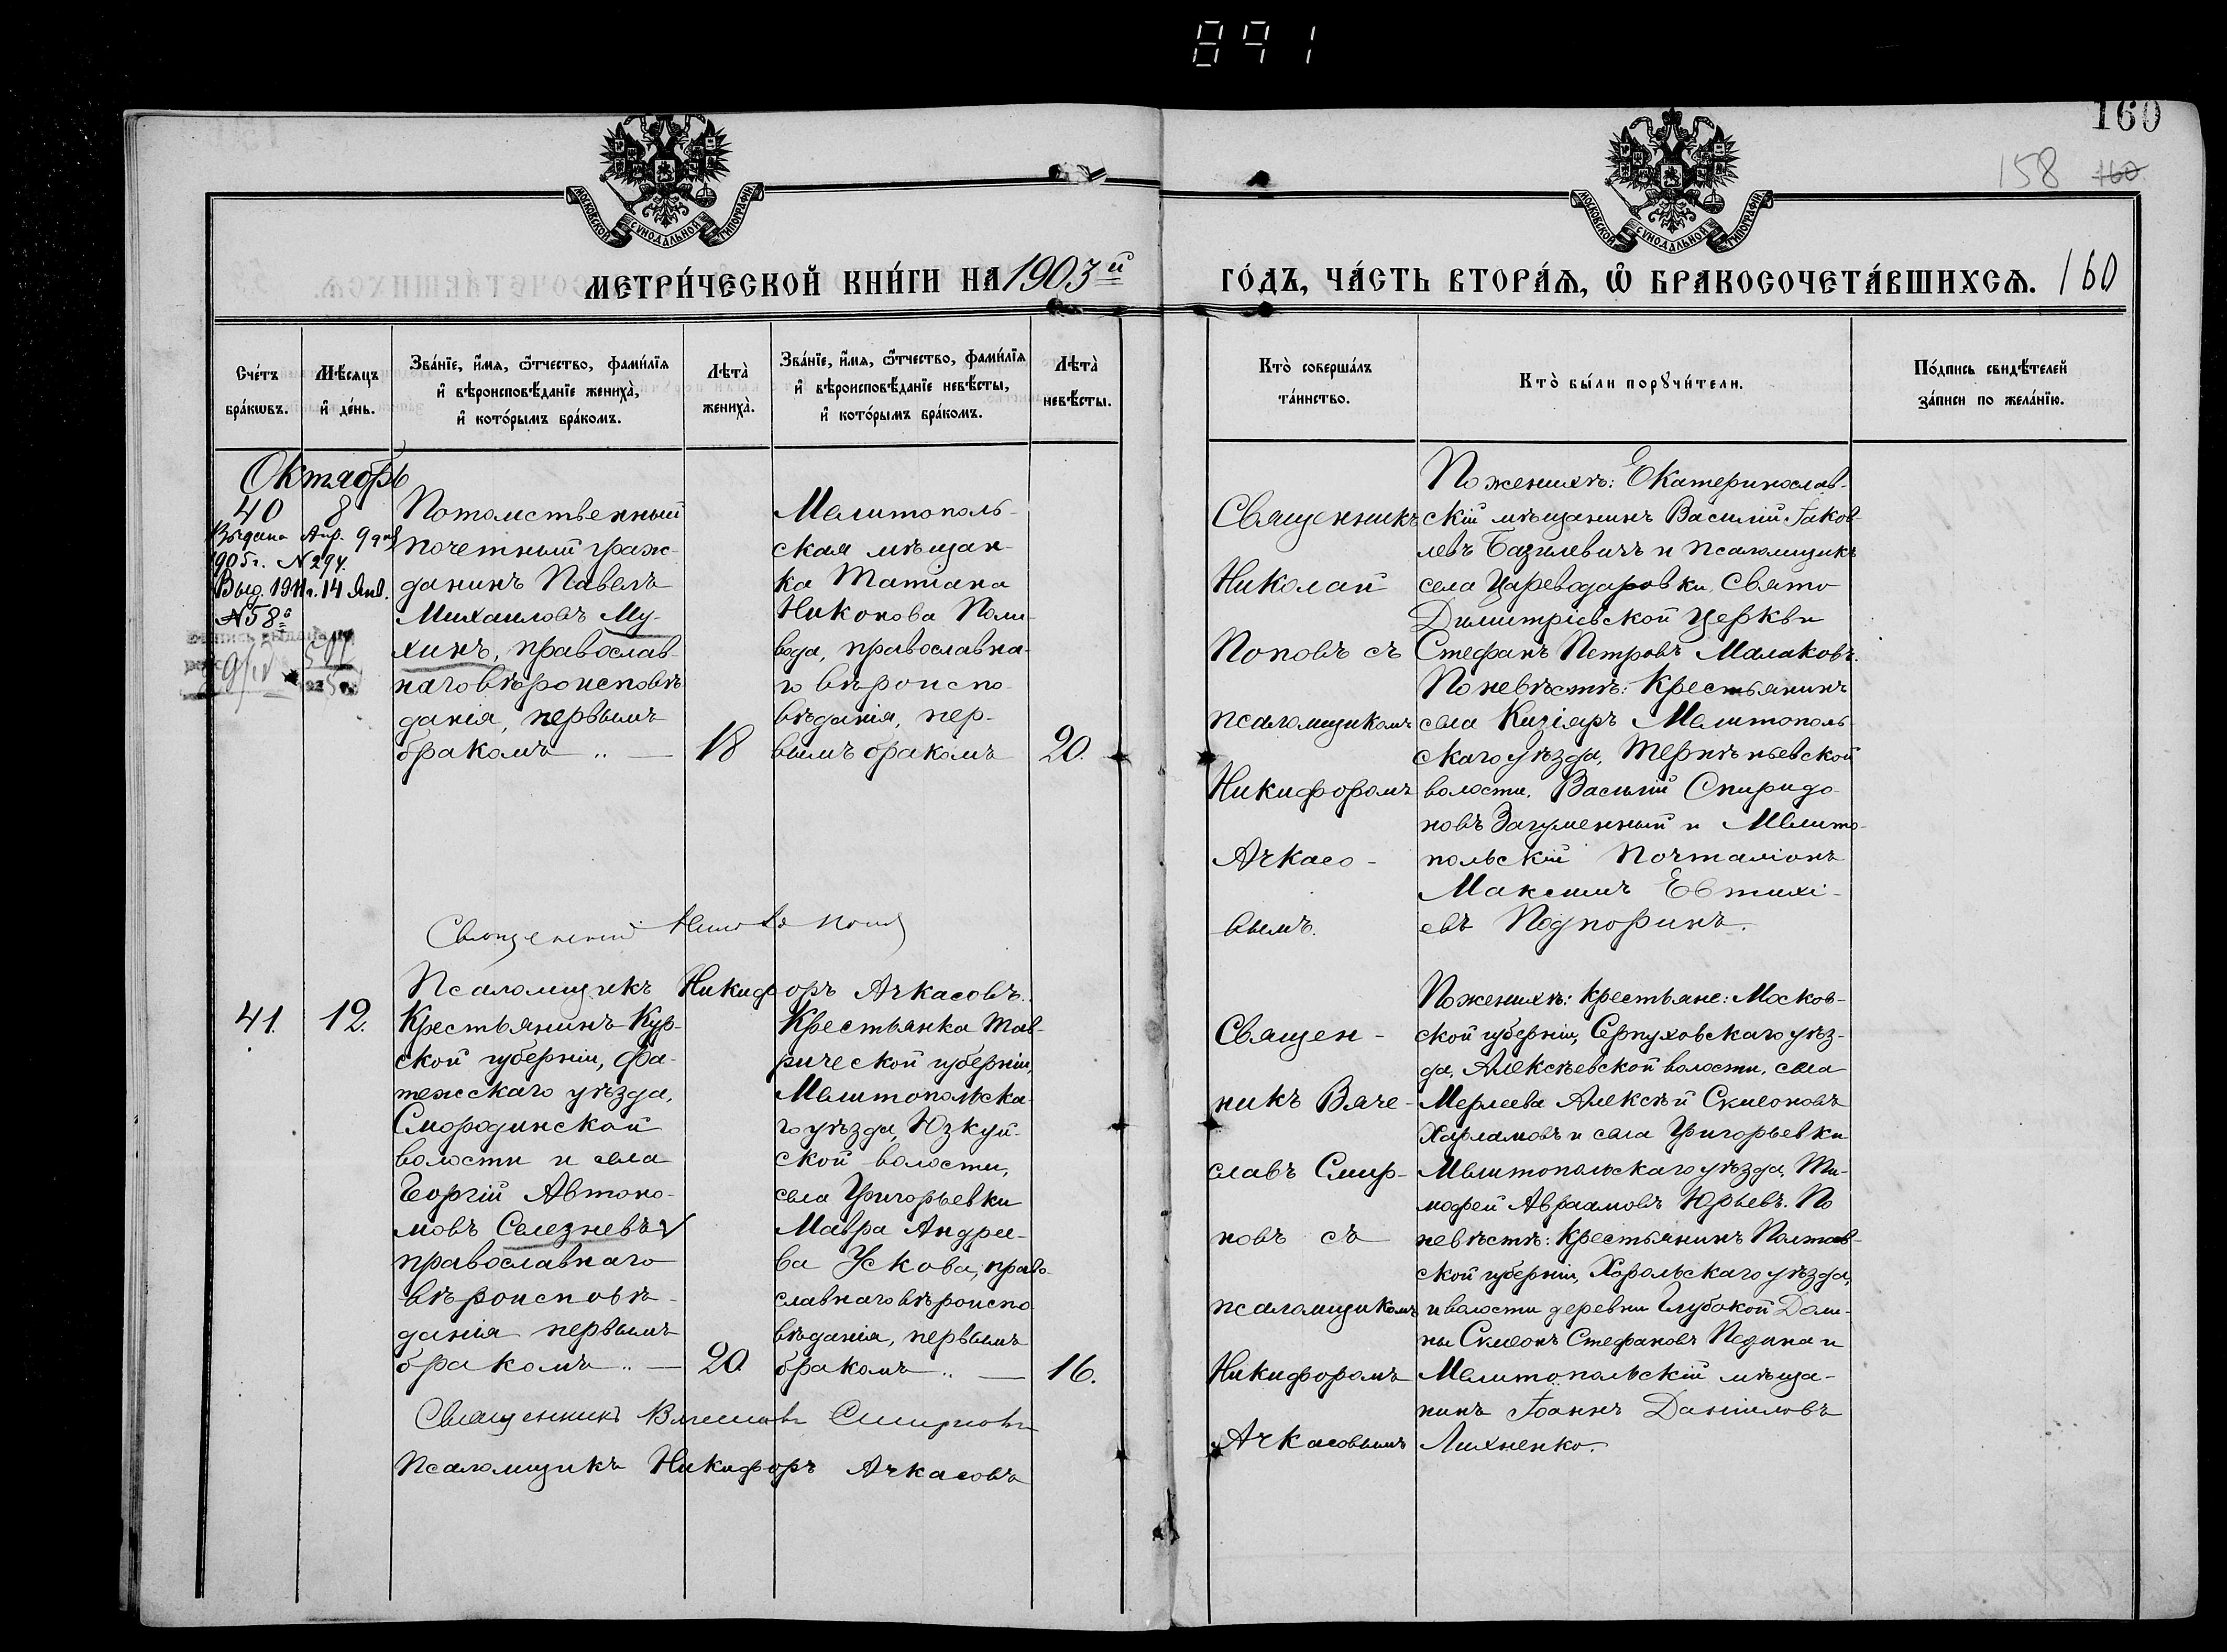 891
160
158 160
МОСКОВСКОЙ СѴНОДАЛЬНОЙ ТИПОГРАФІИ
МОСКОВСКОЙ СѴНОДАЛЬНОЙ ТИПОГРАФІИ
МЕТРИ́ЧЕСКОЙ КНИ́ГИ НА 1903й
ГО́ДЪ, ЧА́СТЬ ВТОРА́Ѧ, Ѽ БРАКОСОЧЕТА́ВШИХСѦ. 160
Сче́тъ бра́кѡвъ.
Мѣ́сяцъ и҆ де́нь.
Зва́нїе, и҆́мѧ, ѻ҆́тчество, фами́лїѧ и҆ вѣроисповѣ́данїе жениха̀, и҆ кото́рымъ бра́комъ.
Лѣта̀ жениха̀.
Зва́нїе, и҆́мѧ, ѻ҆́тчество, фами́лїѧ и҆ вѣроисповѣ́данїе невѣ́сты, и҆ кото́рымъ бра́комъ.
Лѣта̀ невѣ́сты.
Кто̀ соверша́лъ та́инство.
Кто̀ бы́ли порꙋчи́тели.
По́дпись свидѣ́телей за́писи по жела́нїю.
Октябрь
40
8
Выдана Апр. 9 дня
1905 г. № 294.
Выд. 1911 г. 14 Янв.
№ 58
9/IV
Потомственный
почетный граж-
данинъ Павелъ
Михаиловъ Му-
хинъ, православ-
наго вѣроисповѣ-
данія, первымъ
бракомъ
18
Мелитополь-
ская мѣщан-
ка Татіана
Никонова Поли-
вода, православна-
го вѣроиспо-
вѣданія, пер-
вымъ бракомъ
20.
Священникъ
Николай
Поповъ съ
псаломщикомъ
Никифоромъ
Ачкасо-
вымъ.
По женихѣ: Екатеринослав-
скій мѣщанинъ Василій Іаков-
левъ Базилевичъ и псаломщикъ
села Царе­водаровки, Свято
Димитріевской Церкви
Стефанъ Петровъ Малаковъ.
По невѣстѣ: Крестьянинъ
села Кизіяръ Мелитополь
скаго уѣзда, Терпѣньевской
волости, Василій Спиридо-
новъ Загуменный и Мелито-
польскій Почталіонъ
Максимъ Евтихі-
евъ Подпоринъ.
Священникъ
Псаломщикъ Никифоръ Ачкасовъ.
41.
12.
Крестьянинъ Кур-
ской губерніи, Фа-
тежскаго уѣзда,
Смородинской
волости и села
Георгій Автоно-
мовъ Селезневъ
православнаго
вѣроисповѣ-
данія первымъ
бракомъ
20
Крестьянка Тав-
рической губерніи,
Мелитопольска-
го уѣзда, Юзкуй-
ской волости,
села Григорьевки
Мавра Андрее-
ва Ускова, право-
славнаго вѣроиспо-
вѣданія, первымъ
бракомъ
16.
Священ-
никъ Вяче-
славъ Смир-
новъ съ
псаломщикомъ
Никифоромъ
Ачкасовымъ
По женихѣ: крестьяне: Москов-
ской губерніи, Серпуховскаго уѣз-
да, Алексѣевской волости, села
Мерлеева Алексѣй Симеоновъ
Харламовъ и села Григорьевки
Мелитопольскаго уѣзда, Ти-
мофей Авраамовъ Юрьевъ. По
невѣстѣ: Крестьянинъ Полтав-
ской губерніи, Хорольскаго уѣзда,
и волости деревни Глубокой Доли-
ны Симеонъ Стефановъ Педина и
Мелитопольскій мѣща-
нинъ Іоаннъ Даніиловъ
Лихненко.
Священникъ Вячеславъ Смирновъ
Псаломщикъ Никифоръ Ачкасовъ